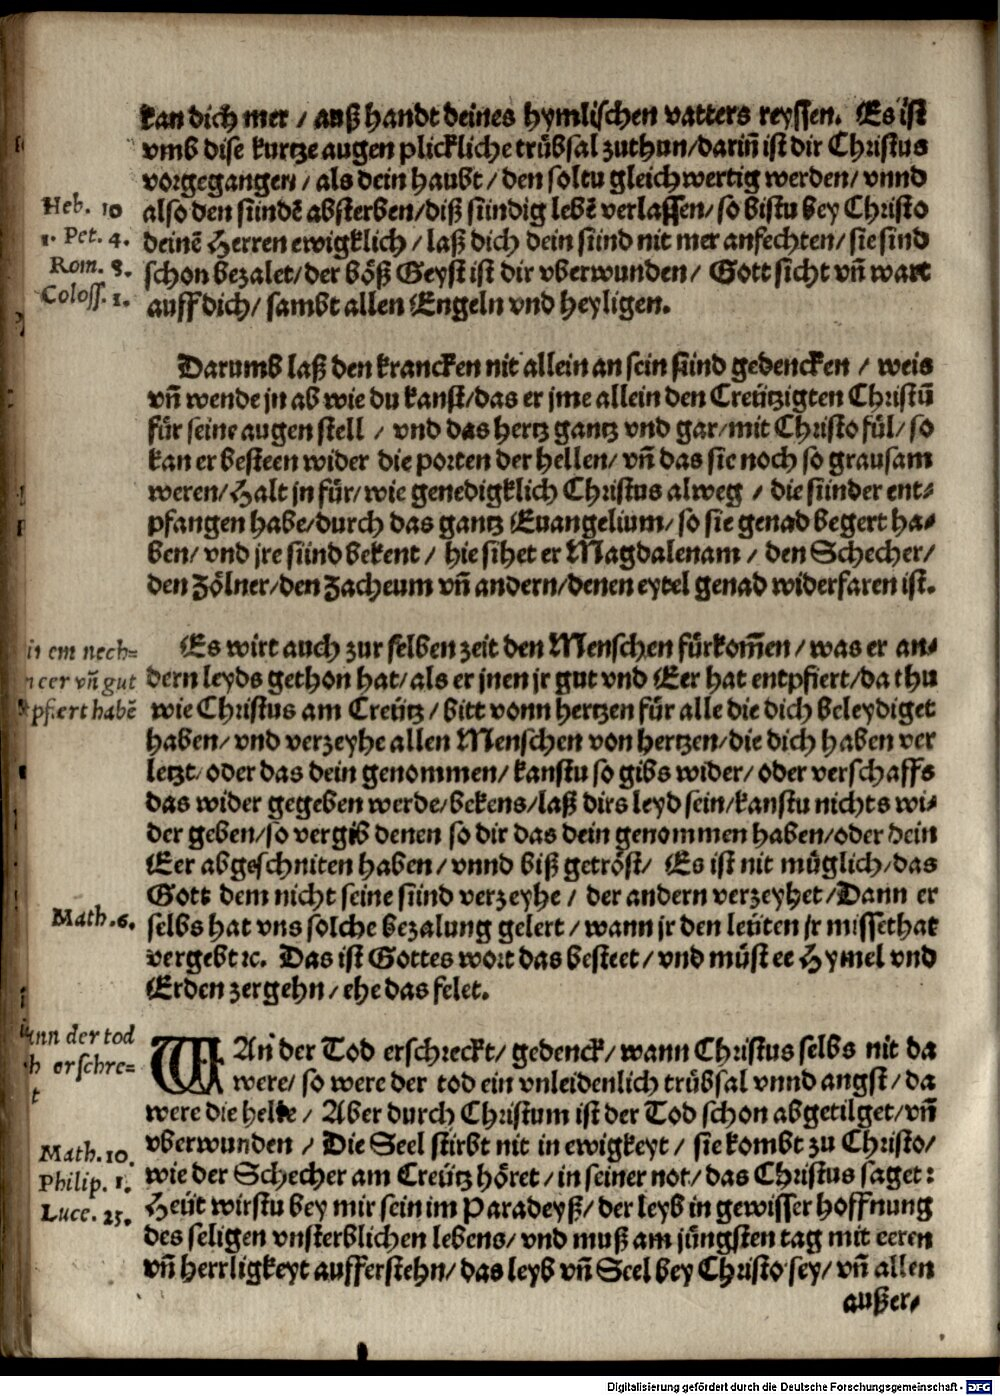 kan dich mer / auß handt deines hymlischen vatters reyssen. Es ist
vmb dise kurtze augen plickliche trübsal zuthun/darin̄ ist dir Christus
vorgegangen / als dein haubt / den soltu gleichwertig werden/ vnnd
Heb. 10
also den sündē absterben/diß sündig lebē verlassen/so bistu bey Christo
1. Pet. 4.
deinē Herren ewigklich / laß dich dein sünd nit mer anfechten/ sie sind
Rom. 8.
schon bezalet/der böß Geyst ist dir vberwunden/ Gott sicht vn̄ wart
Coloss. 1.
auff dich/ sambt allen Engeln vnd heyligen.
Darumb laß den krancken nit allein an sein sünd gedencken / weis
vn̄ wende jn ab wie du kanst/das er jme allein den Creützigten Christū
für seine augen stell / vnd das hertz gantz vnd gar/mit Christo fül/ so
kan er besteen wider die porten der hellen/ vn̄ das sie noch so grausam
weren/Halt jn für/wie genedigklich Christus alweg / die sünder ent-
pfangen habe/durch das gantz Euangelium/ so sie genad begert ha-
ben/ vnd jre sünd bekent / hie sihet er Magdalenam / den Schecher/
den Zölner/den Zacheum vn̄ andern/denen eytel genad widerfaren ist.
Es wirt auch zur selben zeit den Menschen fürkom̄en / was er an-
em nech-
dern leyds gethon hat/als er jnen jr gut vnd Eer hat entpfiert/da thu
eer vn̄ gut
wie Christus am Creütz / bitt vonn hertzen für alle die dich beleydiget
pfiert habē
haben/ vnd verzeyhe allen Menschen von hertzen/die dich haben ver
letzt/oder das dein genommen/ kanstu so gibs wider/oder verschaffs
das wider gegeben werde/bekens/laß dirs leyd sein/kanstu nichts wi-
der geben/so vergib denen so dir das dein genommen haben/oder dein
Eer abgeschniten haben/ vnnd biß getröst/ Es ist nit müglich/das
Gott dem nicht seine sünd verzeyhe / der andern verzeyhet/Dann er
Math .6.
selbs hat vns solche bezalung gelert / wann jr den leüten jr missethat
vergebt ꝛc. Das ist Gottes wort das besteet / vnd müst ee Hymel vnd
Erden zergehn / ehe das felet.
ann der tod
WAn der Tod erschreckt/ gedenck/wann Christus selbs nit da
erschre-
were/ so were der tod ein vnleidenlich trübsal vnnd angst/ da
t
were die helle / Aber durch Christum ist der Tod schon abgetilget/vn̄
Math. 10.
vberwunden / Die Seel stirbt nit in ewigkeyt / sie kombt zu Christo/
Philip. 1.
wie der Schecher am Creütz höret / in seiner not/das Christus saget:
Luce. 23.
Heüt wirstu bey mir sein im Paradeyß/ der leyb in gewisser hoffnung
des seligen vnsterblichen lebens/ vnd muß am jüngsten tag mit eeren
vn̄ herrligkeyt aufferstehn/das leyb vn̄ Seel bey Christo sey/ vn̄ allen
außer-
Digitalisierung gefördert durch die Deutsche Forschungsgemeinschaft - DFG